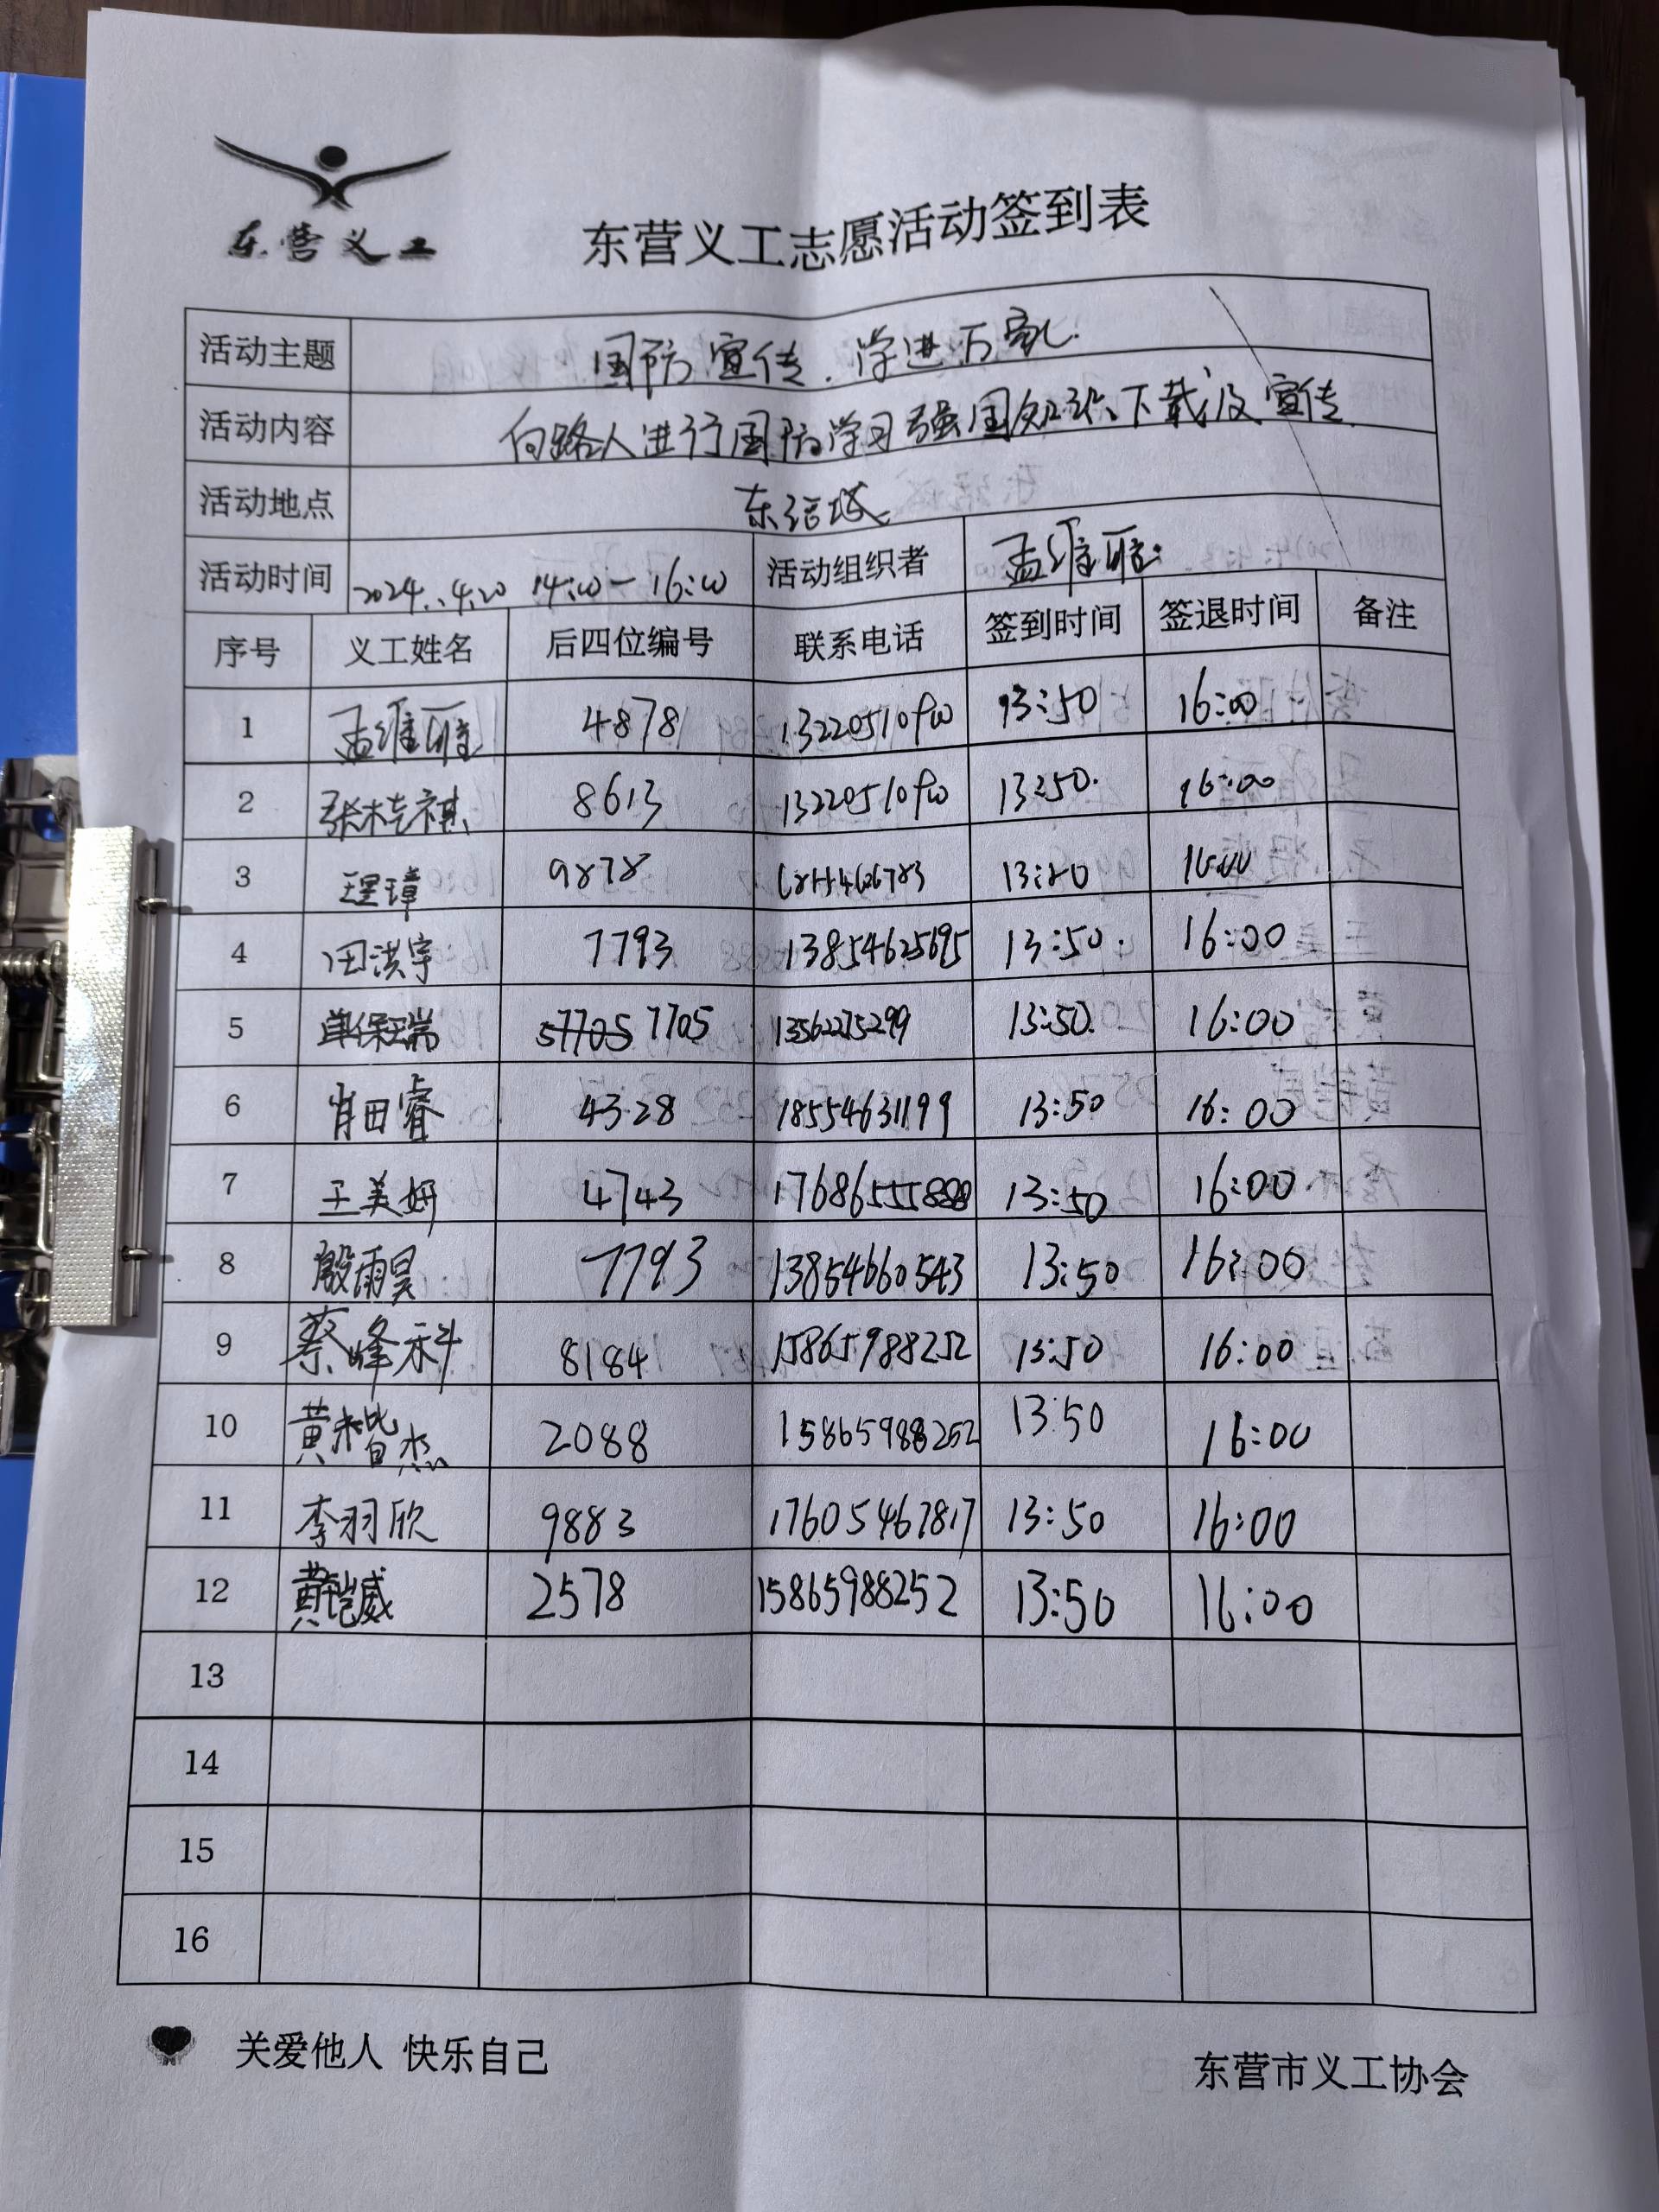 东营义工
东营义工志愿活动签到表
活动主题 国防宣传,学进万家
活动内容 向路人进行国防学习强国知识、下载及宣传
活动地点
活动时间 2024.4.20 14:00-16:00 活动组织者 孟维雁
序号 义工姓名 后四位编号 联系电话 签到时间 签退时间 备注
1 孟维雁 4878 13:50 16:00
2 张桂祺 8613 13:50. 16:00
3 9878 16:00
4 田洪宇 7793 13854625695 13:50. 16:00
5 单保瑞 7705 13562275299 13:50. 16:00
6 肖田睿 4328 18554631199 13:50 16:00
7 王美妍 4743 13:50 16:00
8 殷雨昊 7793 13854660543 13:50 16:00
9 蔡峰科 8184 15865988252 13:50 16:00
10 黄楷杰 2088 15865988252 13:50 16:00
11 李羽欣 9883 17605467817 13:50 16:00
12 黄铠威 2578 15865988252 13:50 16:00
13
14
15
16
关爱他人 快乐自己
东营市义工协会